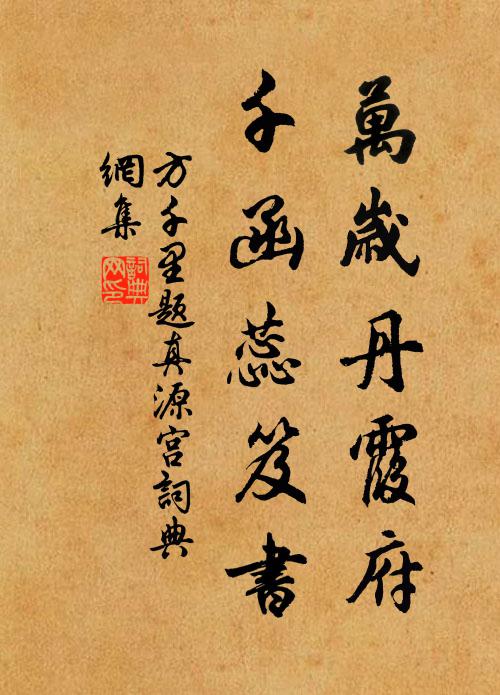 萬歲丹霞府
千函蕊笈書
方千里題真源宮詞典
網集
詞典網印